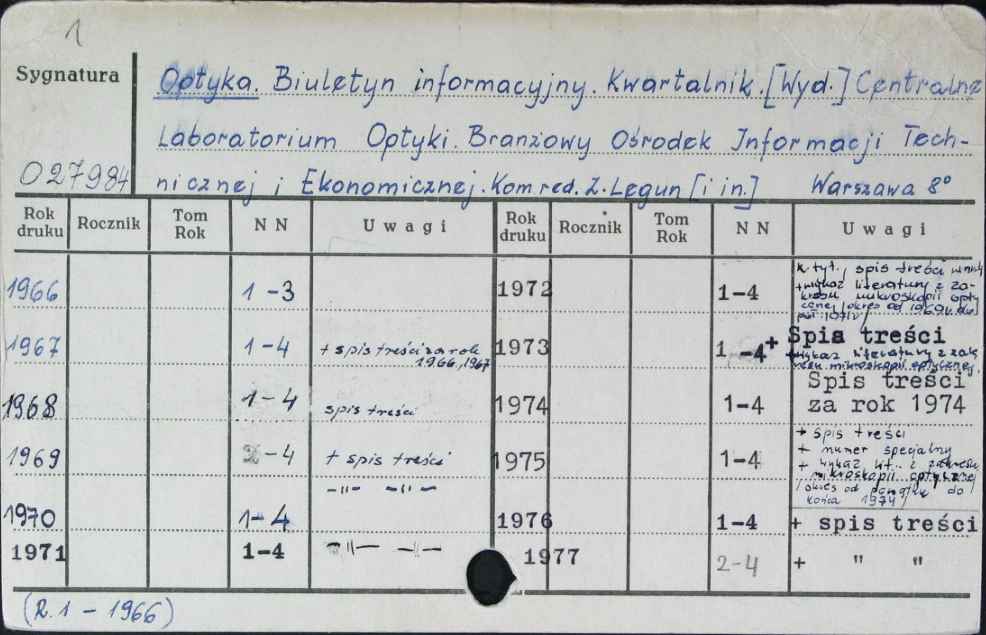 1
Sygnatura
027984
Optyka. Biuletyn informacyjny. Kwartalnik. [Wyd.] Centralne
Laboratorium Optyki. Branżowy Ośrodek Informacji Tech-
nicznej i Ekonomicznej. Kom. red. Z. Legun [i in.] Warszawa 8°
Rok druku Rocznik Tom Rok NN Uwagi Rok druku Rocznik Tom Rok NN Uwagi
1966 1-3 1972 1-4 k. tyt., spis treści
+ wykaz literatury z za-
kresu mikroskopii opty-
cznej /okres od 1969
1967 1-4 + spis treści za rok 1973 1-4 + Spis treści
1966, 1967 + wykaz literatury z zak
resu mikroskopii optycznej.
1968 1-4 spis treści 1974 1-4 Spis treści
za rok 1974
1969 -4 + spis treści 1975 1-4 + spis treści
+ numer specjalny
+ wykaz lit. z zakresu
mikroskopii optycznej
/okres od początku do
końca 1974/
1970 1-4 -"- -"- 1976 1-4 + spis treści
1971 1-4 -"- -"- 1977 2-4 + " "
(R. 1 - 1966)